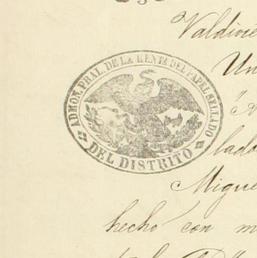 Valdivie
Un
ADMON. PRAL. DE LA RENTA DEL PAPEL SELLADO
DEL DISTRITO
lada
Migue
hecho con m